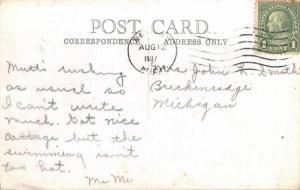 POST CARD
CORRESPONDENCE ADDRESS ONLY
AUG 12
1937
MICH.
1 CENT 1
Mutti's rushing
as usual so
I can't write
much. Got nice
cottage but the
swimming isn't
too hot.
Me Mi
Mrs John L. Smith
Breckenridge
Michigan